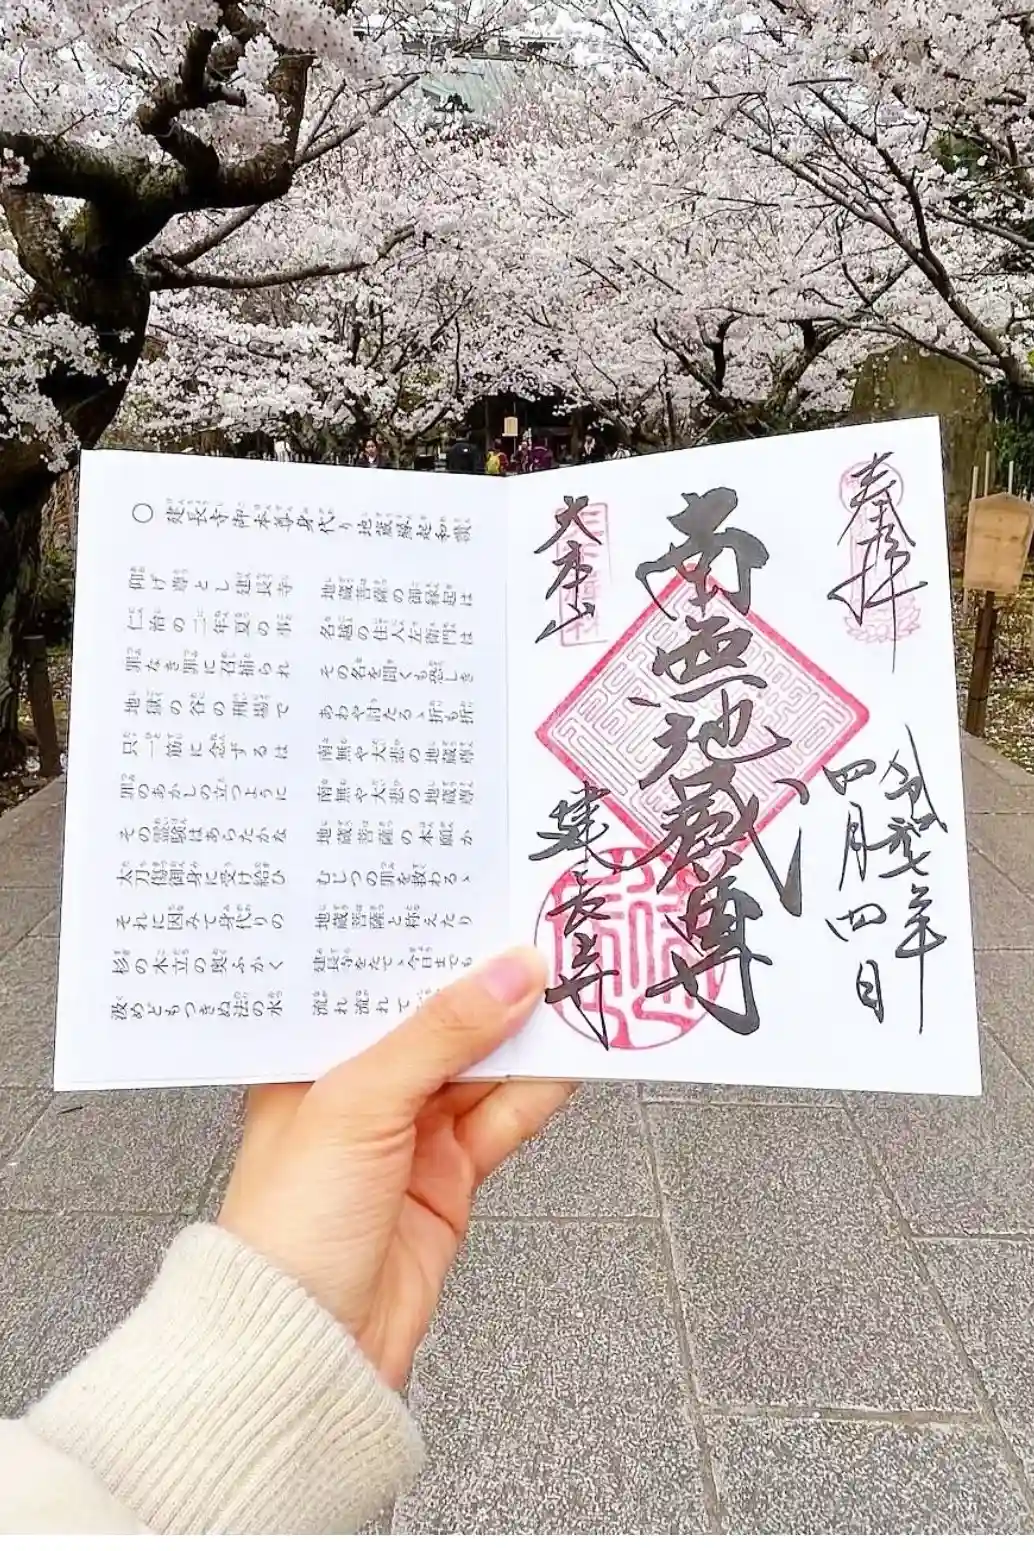 ○ 建長寺御本尊身代り地蔵縁起和讃
仰げ尊とし建長寺 地蔵菩薩の御縁起は
仁治の二年夏の事 名越の住人左衛門は
罪なき罪に召捕られ その名を聞くも恐しき
地獄の谷の刑場で あわや討たるゝ折も折
只一筋に念ずるは 南無や大悲の地蔵尊
罪のあかしの立つように 南無や大悲の地蔵尊
その霊験はあらたかな 地蔵菩薩の本願か
太刀傷御身に受け給ひ むじつの罪を救わるゝ
それに因みて身代りの 地蔵菩薩と称えたり
杉の木立の奥ふかく 建長寺をたてゝ今日までも
汲めどもつきぬ法の水 流れ流れて
奉拝
令和弐年
四月四日
南無地蔵尊
大本山
建長寺